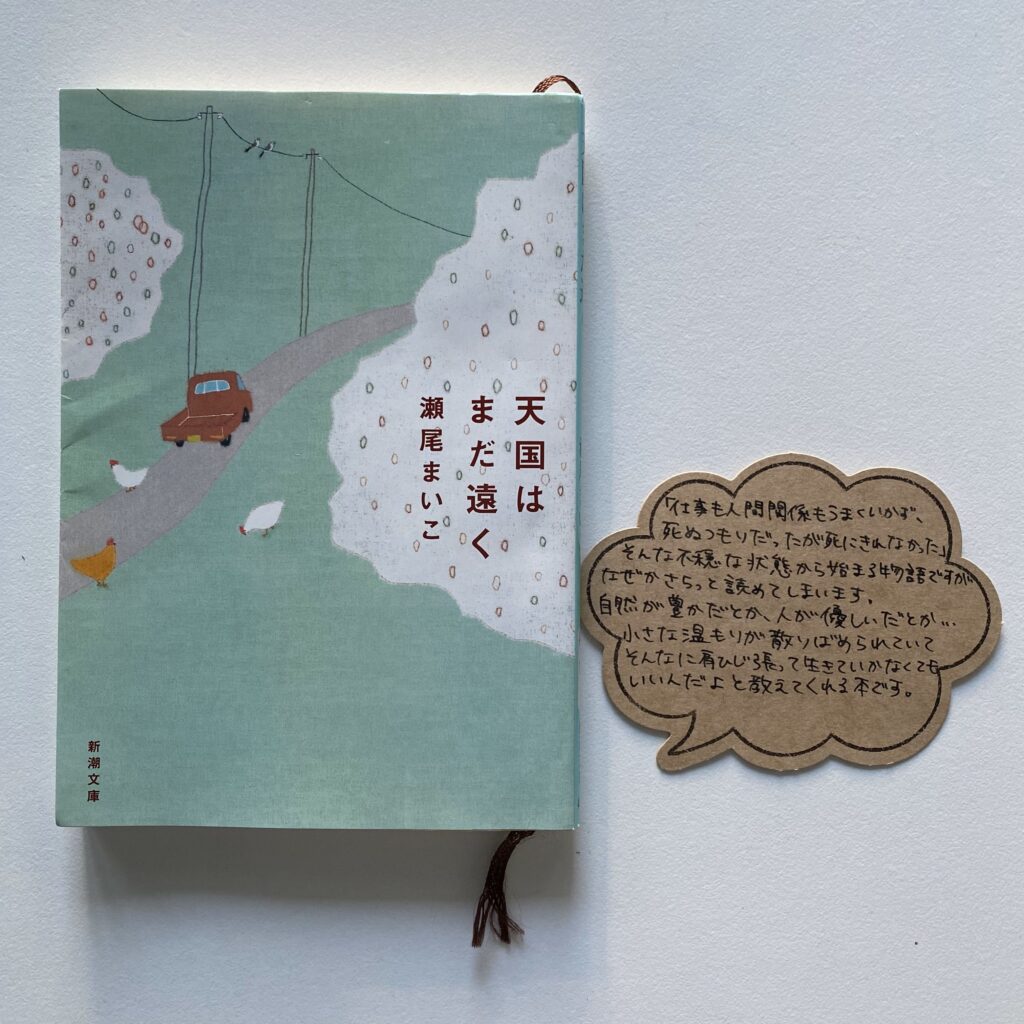 天国は
まだ遠く
瀬尾まいこ
新潮文庫
「仕事も人間関係もうまくいかず、
死ぬつもりだったが死にきれなかった」
そんな不穏な状態から始まる物語ですが
なぜかさらっと読めてしまいます。
自然が豊かだとか、人が優しいだとか…
小さな温もりが散りばめられていて
そんなに肩ひじ張って生きていかなくても
いいんだよと教えてくれる本です。